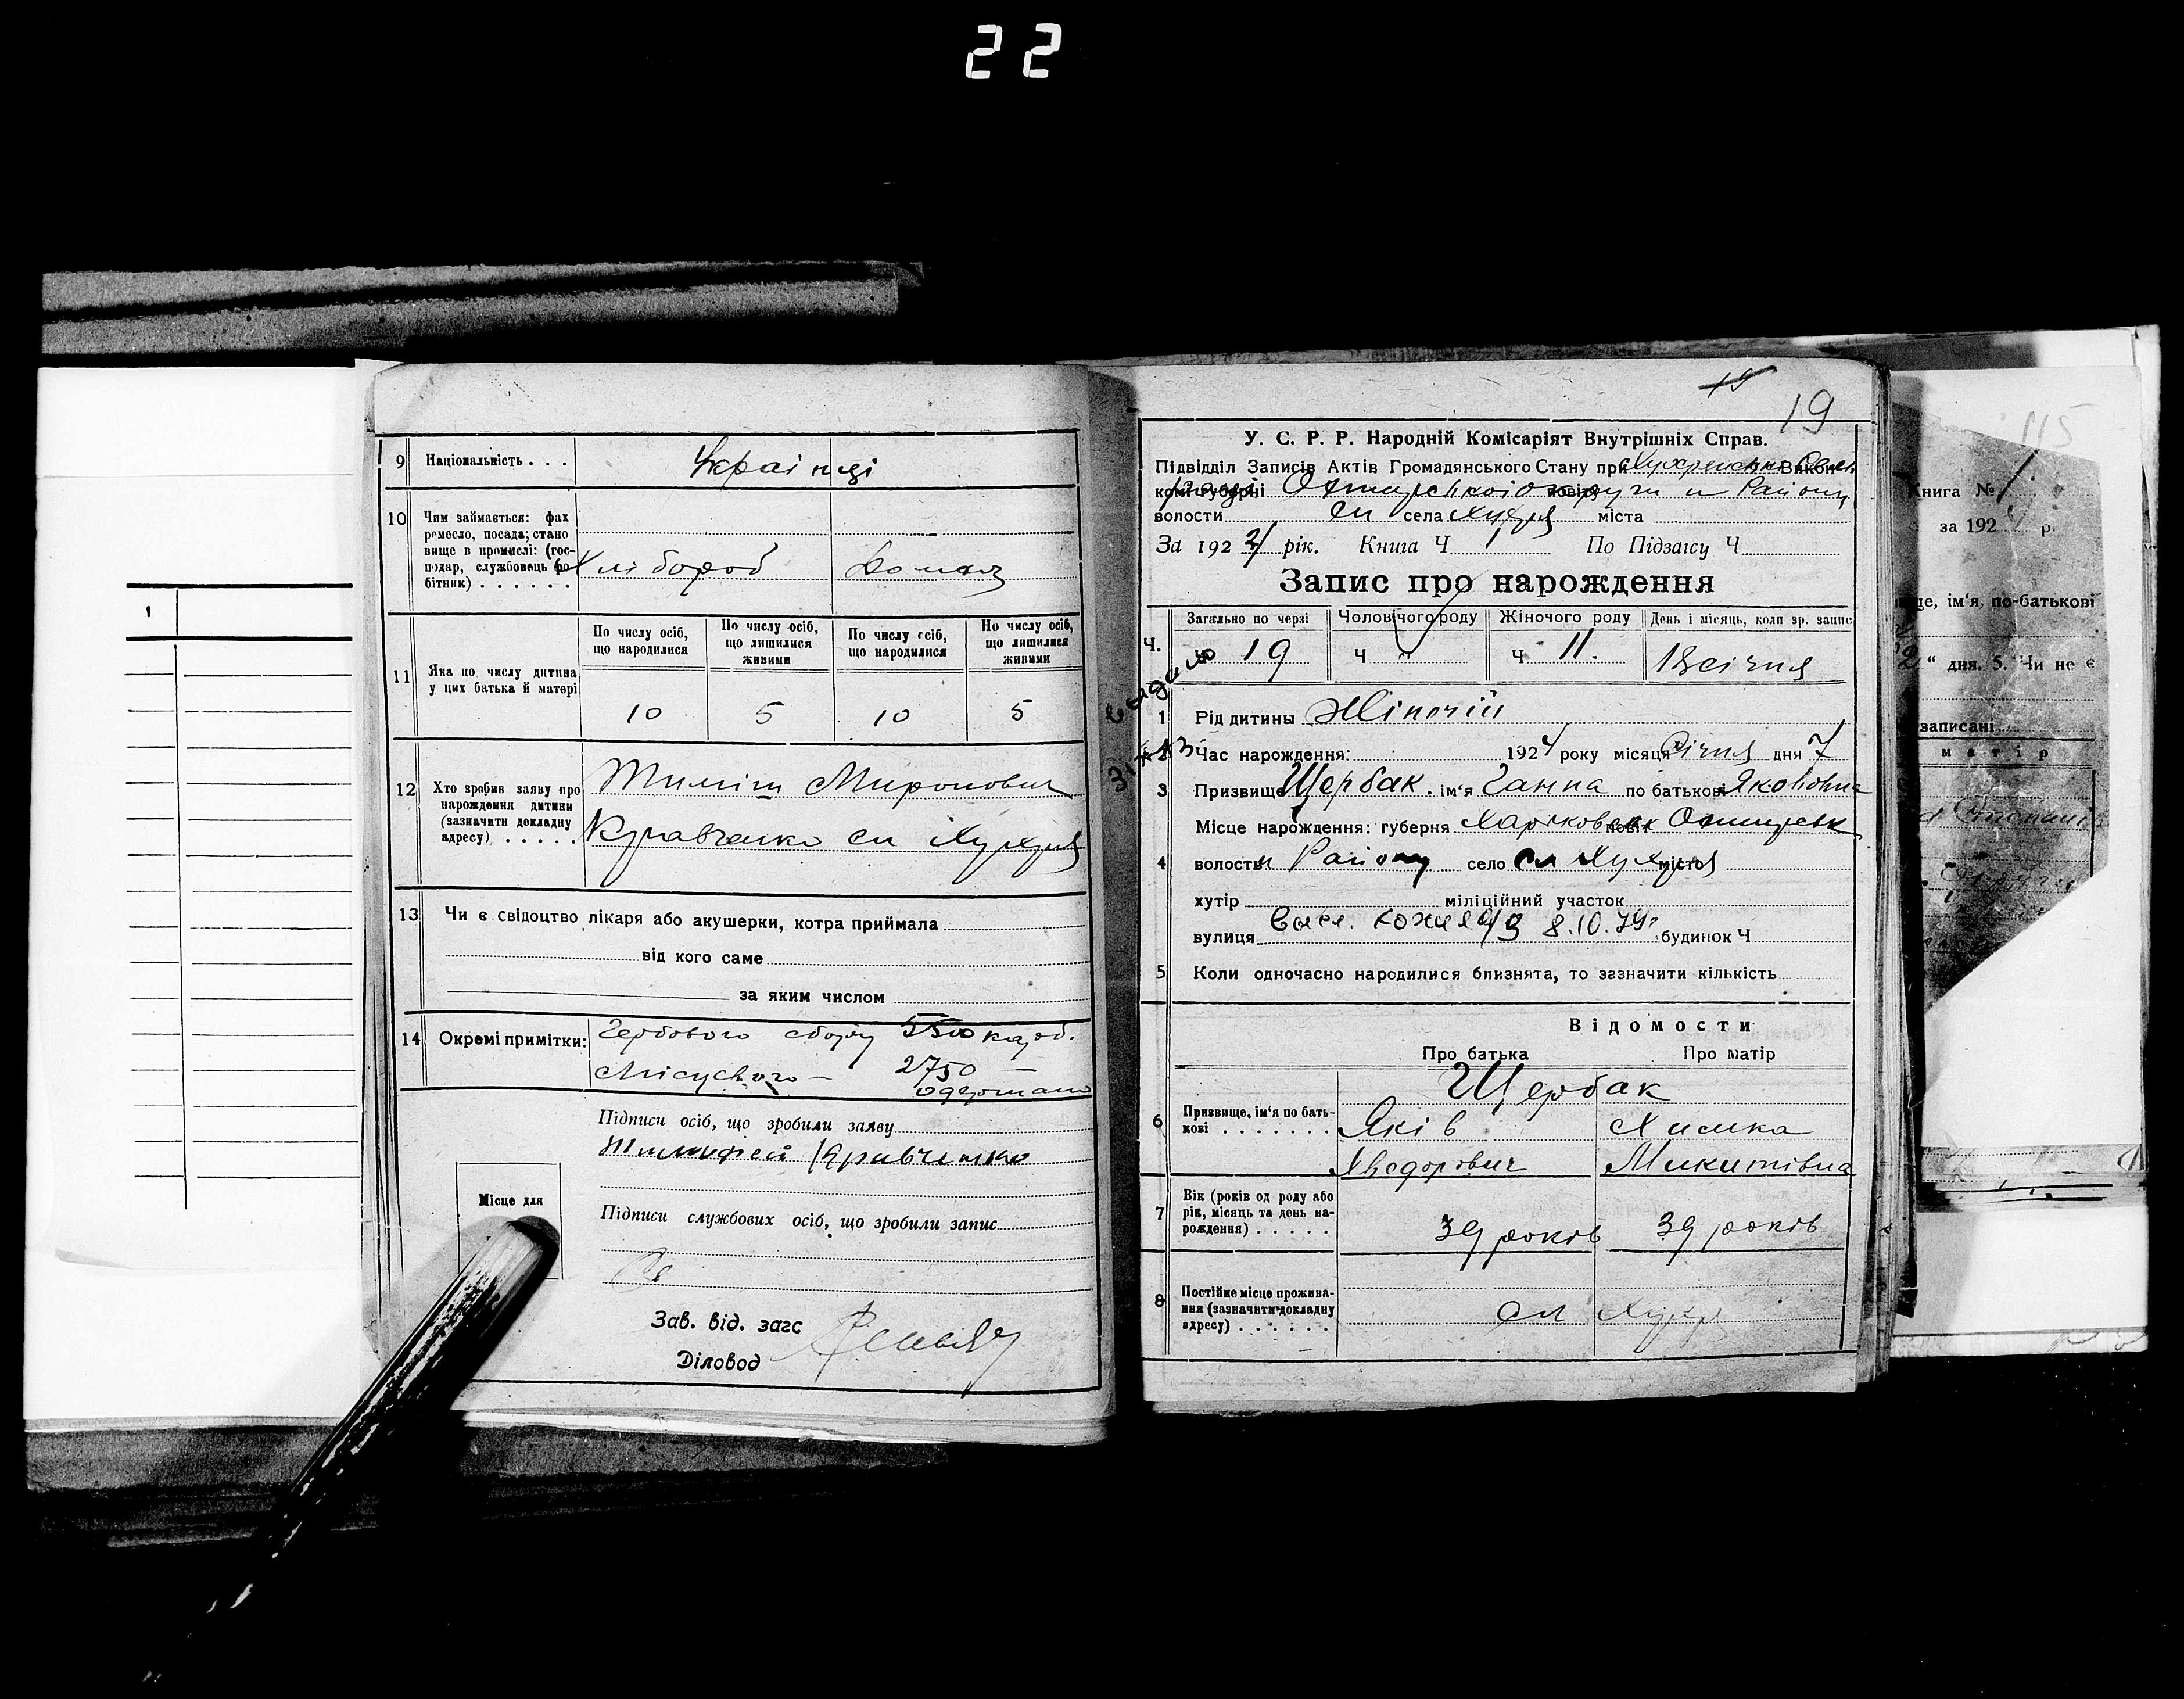 22
9 Національність . . . Українці
10 Чим займається: фах
ремесло, посада; стано
вище в промислі: (гос-
подар, службовець ро
бітник) . . . . . . Хлібороб Домаш
По числу осіб,
що народилися
По числу осіб,
що лишилися
живими
По числу осіб,
що народилися
Но числу осіб,
що лишилися
живими
11 Яка по числу дитина
у цих батька й матері
10 5 10 5
12 Хто зробив заяву про
нарождення дитини
(зазначити докладну
адресу) . . . . .
Тиміш Миронович
Кравченко сл Хухря
13 Чи є свідоцтво лікаря або акушерки, котра приймала
від кого саме
за яким числом
14 Окремі примітки: Гербового сбору 5500 карб.
Місцевого — 2750 —
одержано
Підписи осіб, що зробили заяву
Тимофей Кравченко
Місце для
Підписи службових осіб, що зробили запис
Зав. від. загс
Діловод
19
19
У. С. Р. Р. Народній Комісаріят Внутрішніх Справ.
Підвідділ Записів Актів Громадянського Стану при Хухрянські Викон
комі губерні Охтирської округи и Району
волости сл села Хухря міста
За 1924 рік. Книга Ч По Підзагсу Ч
Запис про нарождення
Ч. Загально по черзі Чоловічого роду Жіночого роду День і місяць, коли зр. запис
19 Ч " Ч 11. 18 січня
1 Рід дитины Жіночій
2 Час нарождення: 1924 року місяця Січня дня 7
3 Призвище Щербак. ім'я Ганна по батькові Яковівна
Місце нарождення: губерня Харьковськ повіт Охтирськ
4 волость и Району село сл Хухря місто
хутір міліційний участок
вулиця 8.10.79г. будинок Ч
5 Коли одночасно народилися близнята, то зазначити кількість
Відомости
Про батька Про матір
Щербак
6 Призвище, ім'я по бать-
кові . . . . . . . Яків Химка
Хведорович Микитівна
7 Вік (років од роду або
рік, місяць та день на-
рождення) . . . . . 39 років 39 років
8 Постійне місце прожива-
ння (зазначити докладну
адресу) . . . . . . сл Хухр
115
Книга №
за 192 р.
ім'я, по-батькові
" дня. 5. Чи не є
записані
матір
1